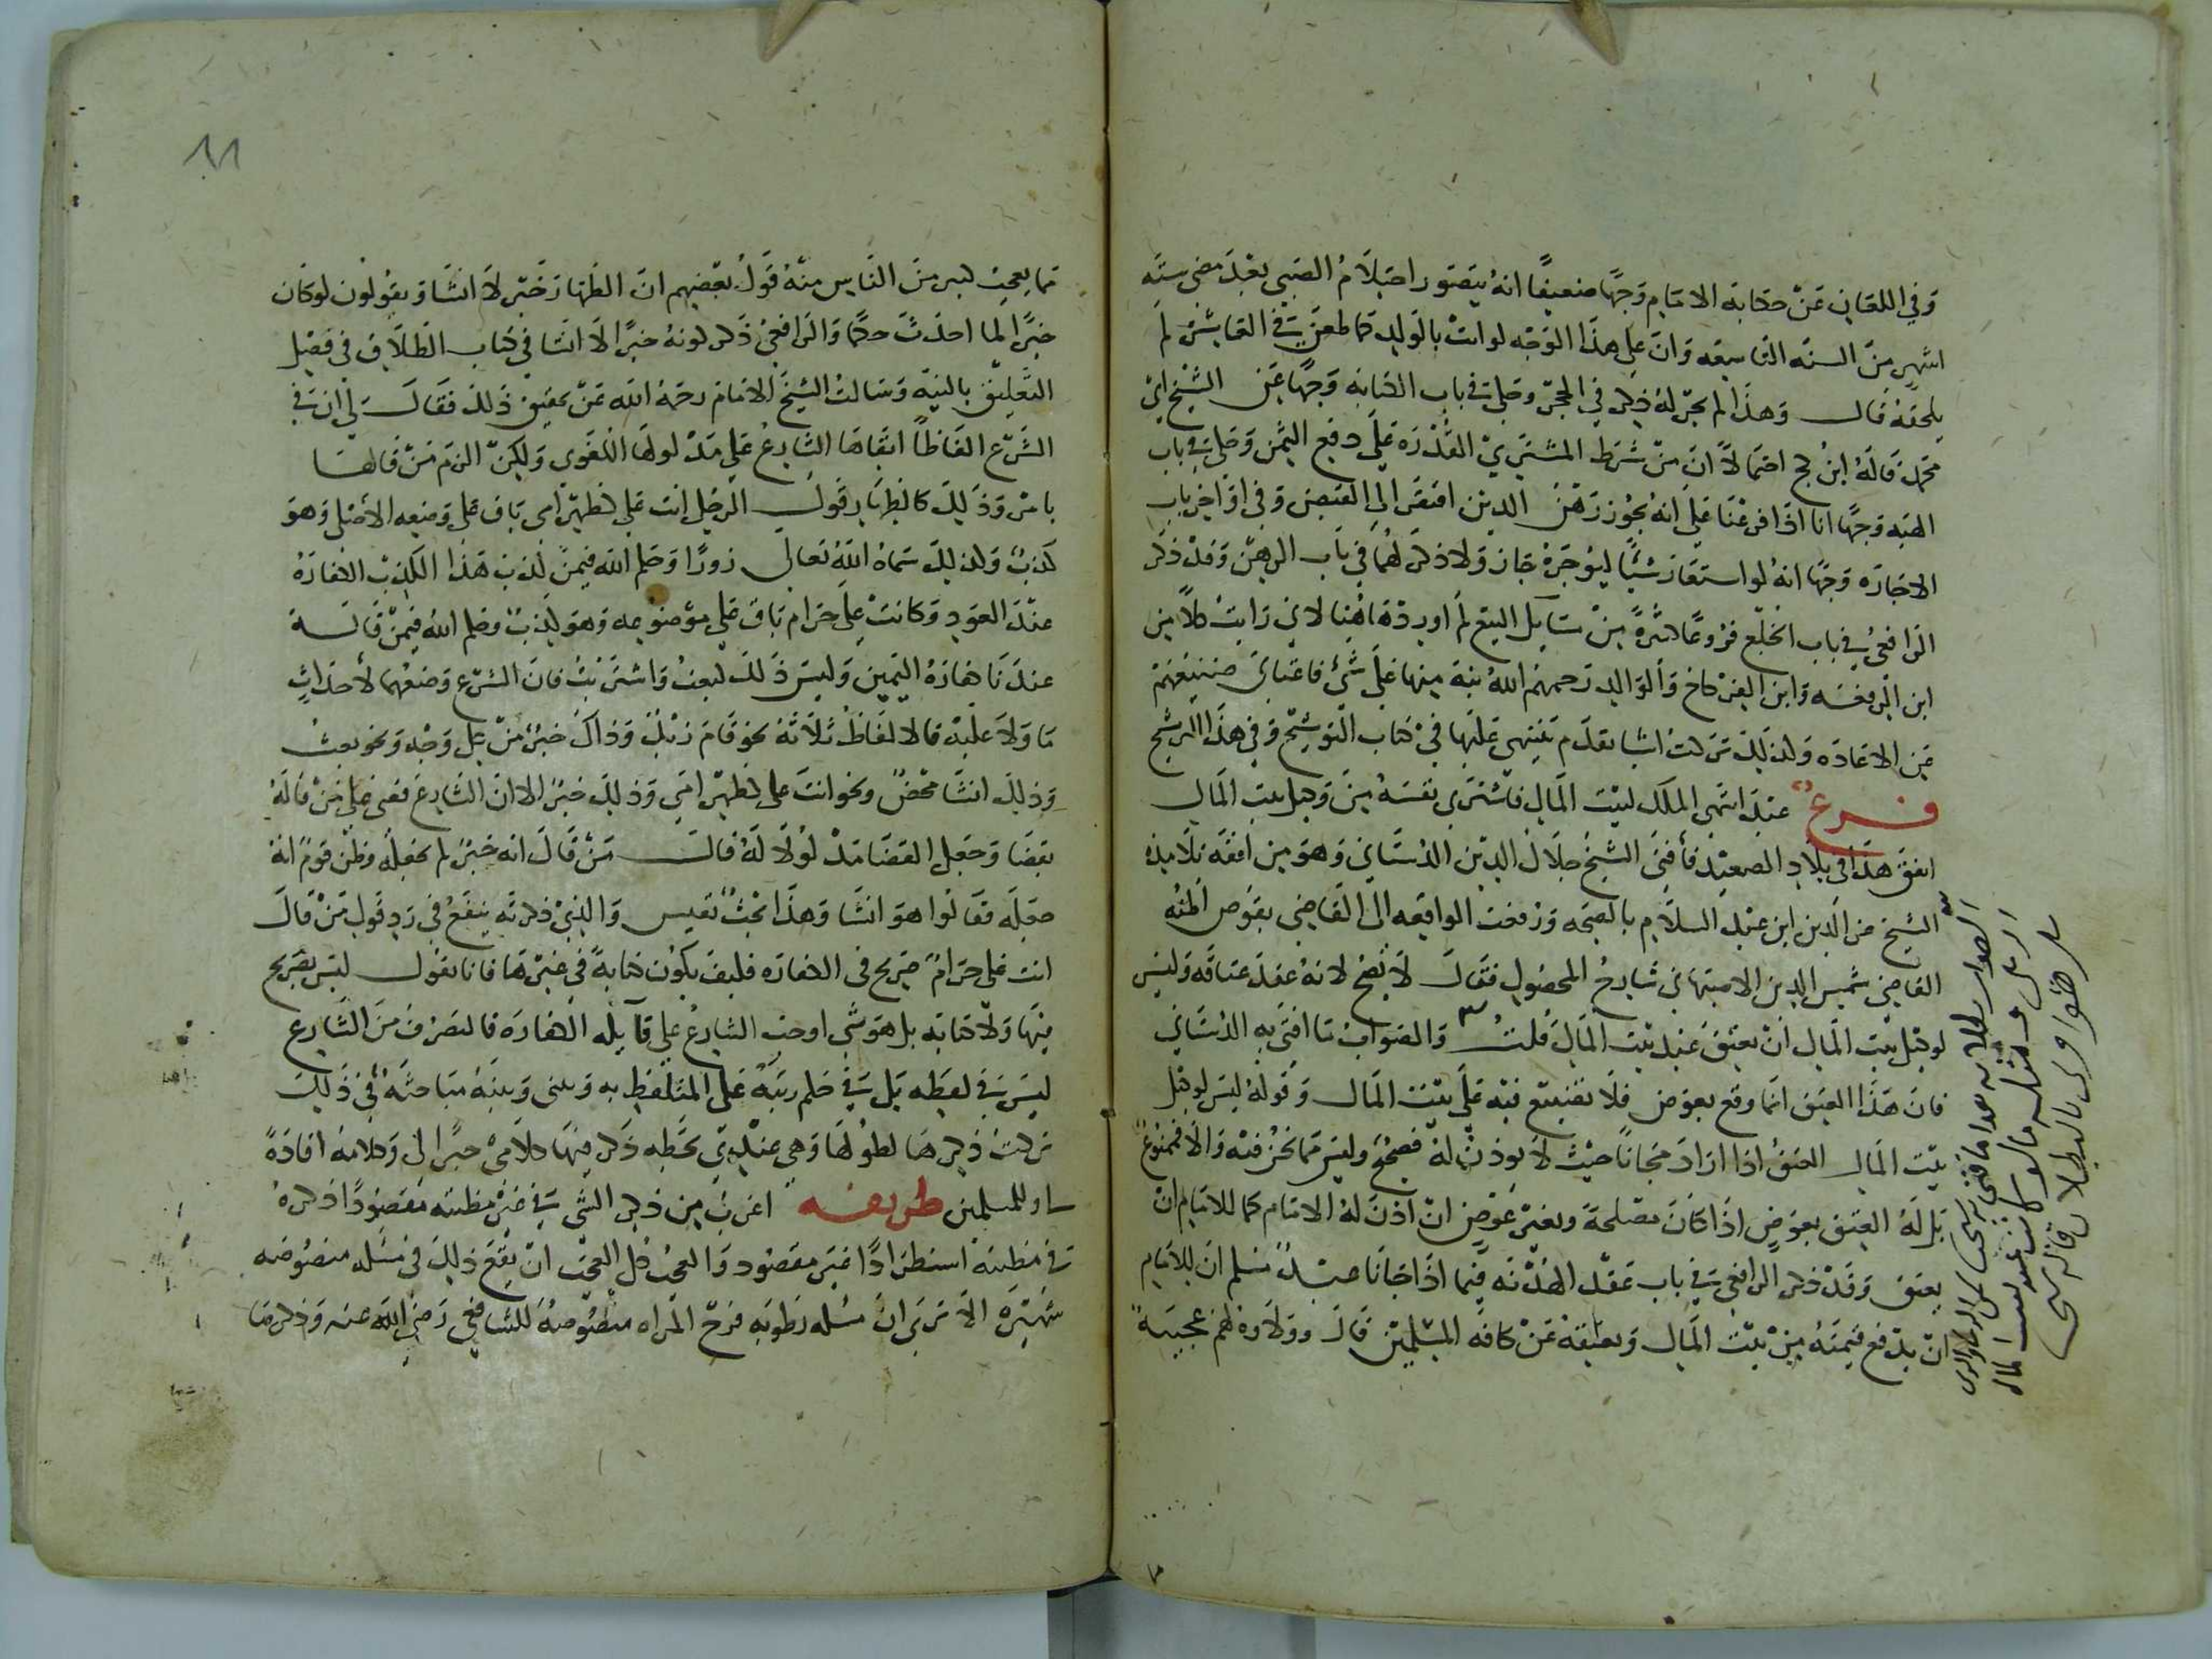 وفي اللعان عن حكاية الامام وجها ضعيفا انه يتصور احتلام الصبي بعد مضى ستة
اشهر من السنه التاسعه وان على هذا الوجه لو اتت بالولد لم
يلحقه قال وهذا لم يجر له ذكر في الحجر وحكى في باب الكتابه وجها عن الشيخ ابى
محمد قاله ابن كج احتمالا ان من شرط المشترى القدره على دفع الثمن وحكى في باب
الهبه وجها انا اذا فرعنا على انه يجوز رهن الدين افتقر الى القبض وفي اواخر باب
الاجاره وجها انه لو استعار شيئا ليؤجره جاز ولا ذكر لهما في باب الرهن وقد ذكر
الرافعى في باب الخلع فروعا كثيرة من مسايل البيع لم اوردها هنا لاني رايت كلا من
ابن الرفعه وابن الفركاح والوالد رحمهم الله نبه منها على شي فاغناني صنيعهم
عن الاعاده ولذلك تركت اشيا تقدم تنبيهى عليها في كتاب التوشيح وفي هذا الترشيح
فرع عبد انتهى الملك لبيت المال فاشترى نفسه من وكيل بيت المال
اتفق هذا في بلاد الصعيد فأفتى الشيخ جلال الدين الدشناني وهو من افقه تلامذة
الشيخ عز الدين ابن عبد السلام بالصحه ورفعت الواقعه الى القاضي بقوص اظنه
القاضي شمس الدين الاصبهاني شارح المحصول فقال لا يصح لانه عقد عتاقه وليس
لوكيل بيت المال ان يعتق عبد بيت المال قلت والصواب ما افتى به الدشناني
فان هذا العتق انما وقع بعوض فلا تضييع فيه على بيت المال وقوله ليس لوكيل
بيت المال العتق اذا اراد مجانا حيث لا يوذن له فصحيح وليس مما نحن فيه والا فممنوع
بل له العتق بعوض اذا كان مصلحة وبغير عوض ان اذن له الامام كما للامام ان
يعتق وقد ذكر الرافعي في باب عقد الهدنه فيما اذا جانا عبد مسلم ان للامام
ان يدفع قيمته من بيت المال ويعتقه عن كافه المسلمين قال وولاوه لهم عجيبة
الصواب
بيت المال
١١
مما يعجب كثير من الناس منه قول بعضهم ان الظهار خبر لا انشا ويقولون لو كان
خبرا لما احدث حكما والرافعى ذكر كونه خبرا لا انشا في كتاب الطلاق في فصل
التعليق بالنية وسالت الشيخ الامام رحمه الله عن تحقيق ذلك فقال لى ان في
الشرع الفاظا ابقاها الشارع على مدلولها اللغوى ولكن الزم من قالها
بامر وذلك كالظهار قول الرجل انت علي كظهر امى باق على وضعه الاصلى وهو
كذب ولذلك سماه الله تعالى زورا وحكم الله فيمن كذب هذا الكذب الكفارة
عند العود وكانت على حرام باق على موضوعه وهو كذب وحكم الله فيمن قاله
عندنا كفارة اليمين وليس ذلك كبعت واشتريت فان الشرع وضعهما لأحداث
ما ولا عليه فالالفاظ ثلاثة نحو قام زيد وذاك خبر من كل وجه ونحو بعت
وذلك انشا محض ونحو انت علي كظهر امي وذلك خبر الا ان الشارع قضى على من قاله
بقضا وجعل القضا مدلولا له قال من قال انه خبر لم يجعله وظن قوم انه
جعله فقالوا هو انشا وهذا بحث نفيس والذي ذكرته ينفع في رد قول من قال
انت علي حرام صريح في الكفاره فكيف يكون كناية في غيرها فانا نقول ليس بصريح
فيها ولا كنايه بل هو شي اوجب الشارع على قايله الكفاره فالتصرف من الشارع
ليس في لفظه بل في حكم رتبه على المتلفظ به وبيني وبينه مباحثة في ذلك
تركت ذكرها لطولها وهي عندي بخطه ذكر فيها كلامي خبرا لى وكلامه افادة
لى وللمسلمين طريفه اغرب من ذكر الشى في غير مظنته مقصودا ذكره
في مظنته استطرادا غير مقصود والعجب كل العجب ان يقع ذلك في مسله منصوصه
شهيره الا ترى ان مسله رطوبه فرج المراه منصوصة للشافعي رضي الله عنه وذكرها